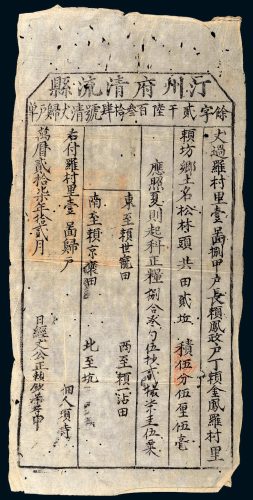 汀州府清流縣
餘字貳千陸百叁拾肆號清丈歸戶单
丈過羅村里壹啚捌甲户長賴鳳政户丁賴金鳳羅村里
賴坊鄉土名松林頭共田貳坵積伍分伍厘伍毫
應照夏則起科正糧捌合
東至賴世寵田 西至賴一沾田
南至賴京養田 北至坑
右付羅村里壹啚歸户 個人須時
萬曆貳拾柒年拾貳月 日經丈公正賴